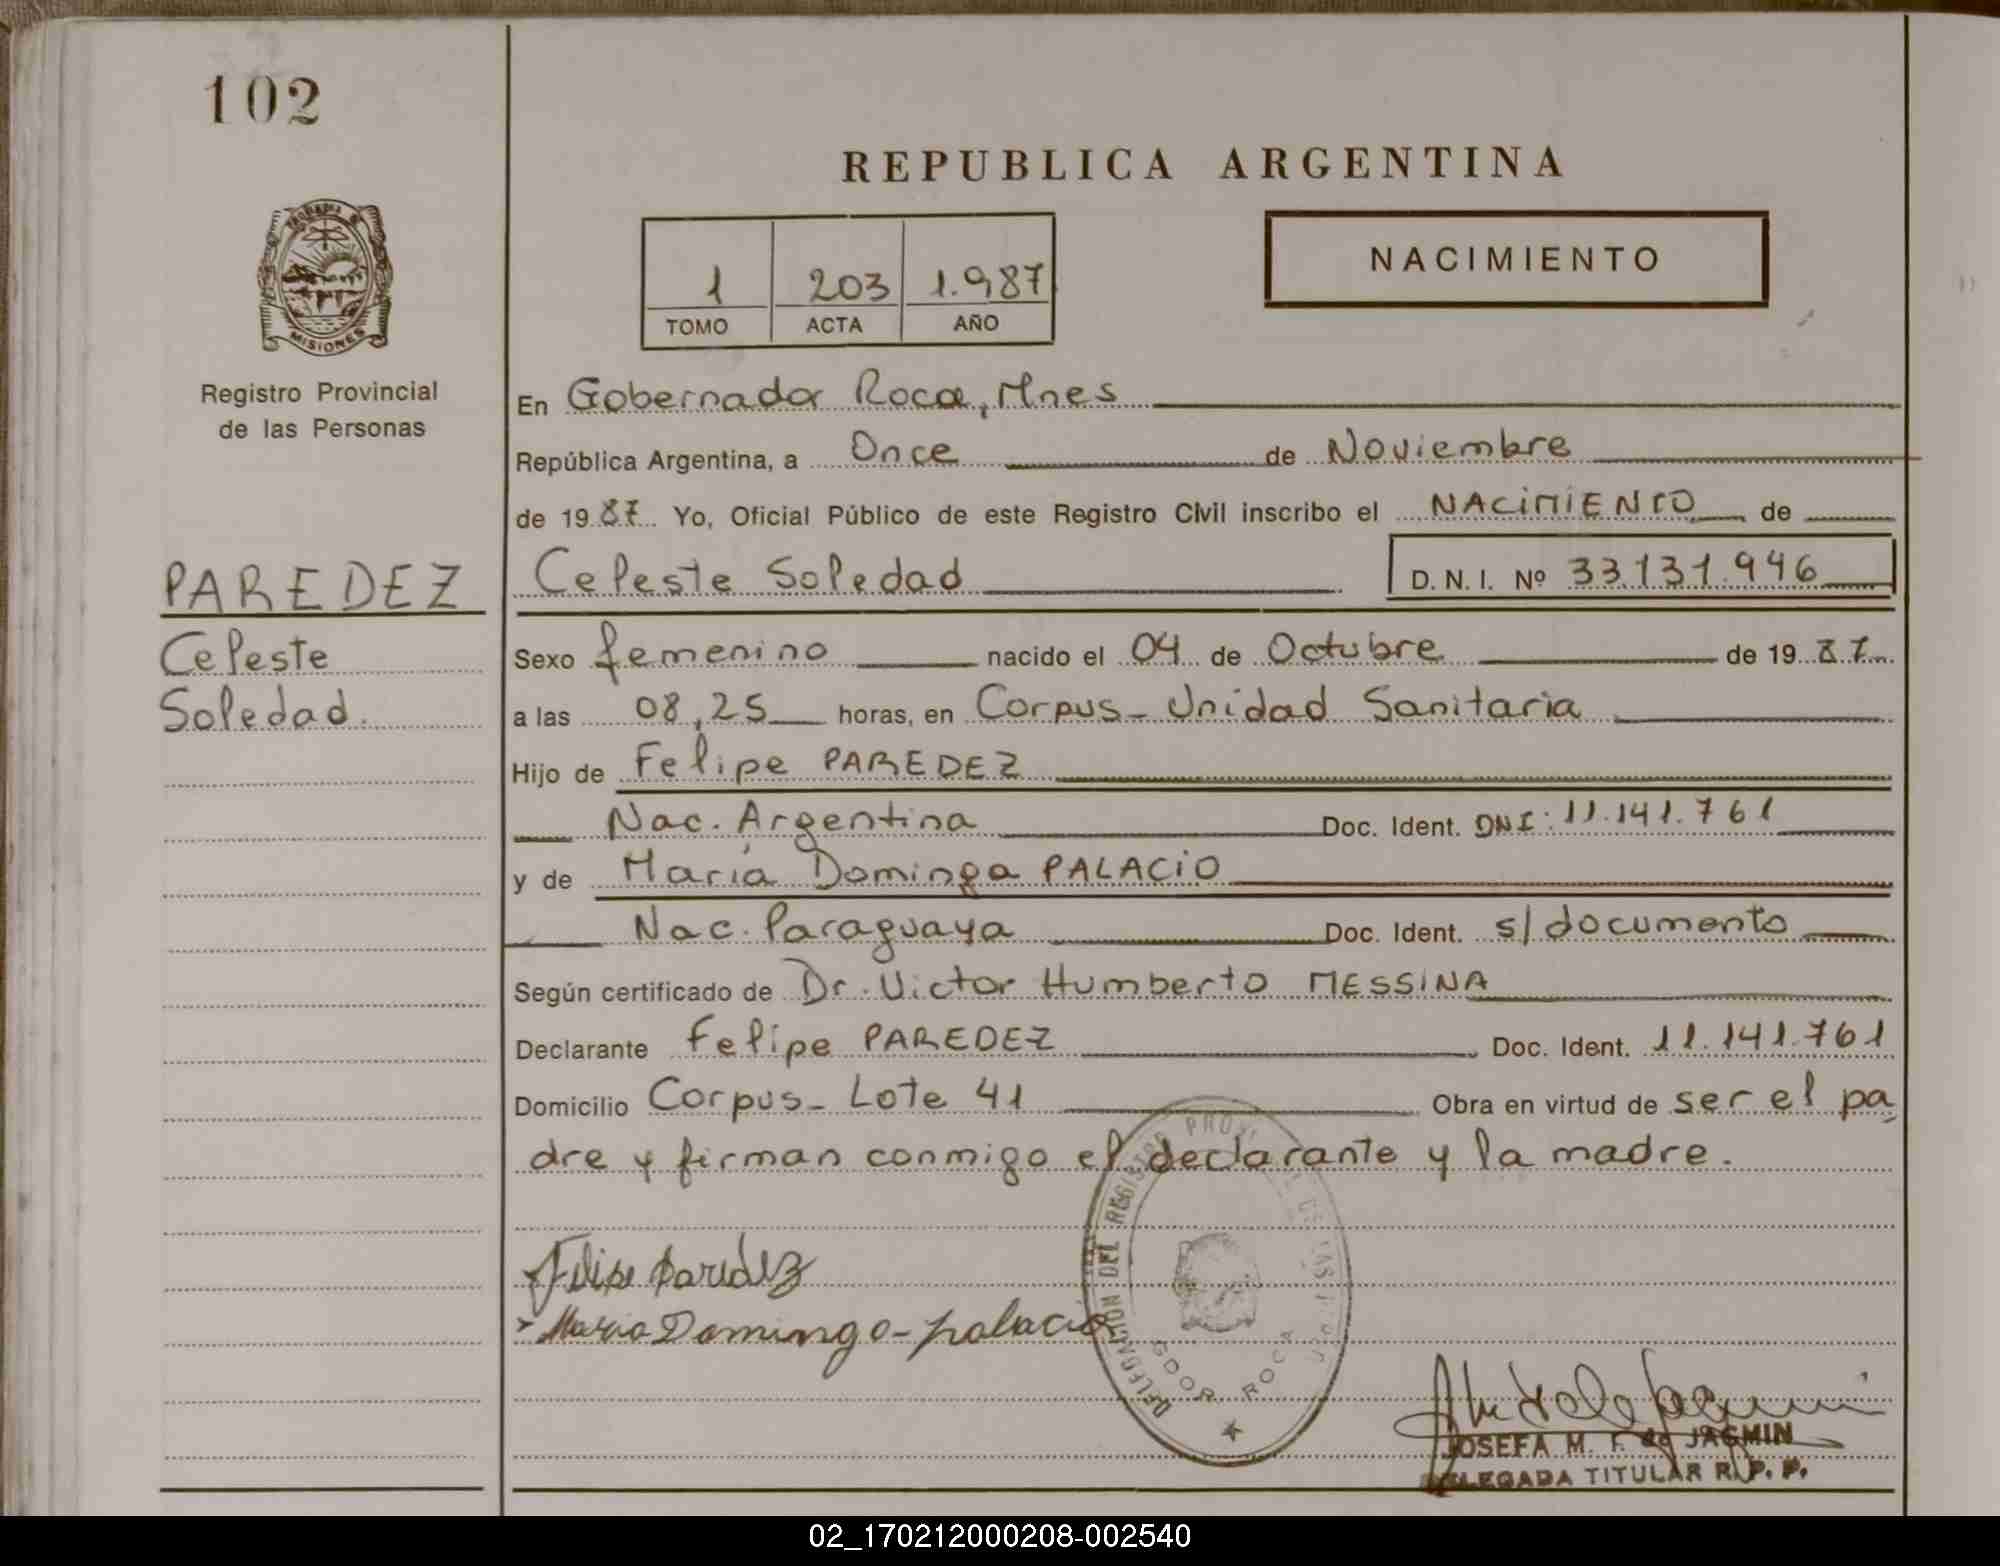 102
REPUBLICA ARGENTINA
NACIMIENTO
1 203 1.987
TOMO ACTA AÑO
PROVINCIA DE
MISIONES
Registro Provincial
de las Personas
En Gobernador Roca, Mnes
República Argentina, a Once de Noviembre
de 1987 Yo, Oficial Público de este Registro Civil inscribo el NACIMIENTO de
PAREDEZ
Celeste
Soledad.
Celeste Soledad D. N. I. Nº 33.131.946
Sexo femenino nacido el 04 de Octubre de 1987
a las 08,25 horas, en Corpus - Unidad Sanitaria
Hijo de Felipe PAREDEZ
Nac. Argentina Doc. Ident. DNI: 11.141.761
y de María Dominga PALACIO
Nac. Paraguaya Doc. Ident. s/documento
Según certificado de Dr. Victor Humberto MESSINA
Declarante Felipe PAREDEZ Doc. Ident. 11.141.761
Domicilio Corpus - Lote 41 Obra en virtud de ser el pa
dre y firman conmigo el declarante y la madre.
Felipe Paredez
Maria Domingo - palacio
DELEGACION DEL REGISTRO PROV DE LAS
GDOR. ROCA
JOSEFA M. F. de JAGMIN
DELEGADA TITULAR R. P. P.
02_170212000208-002540